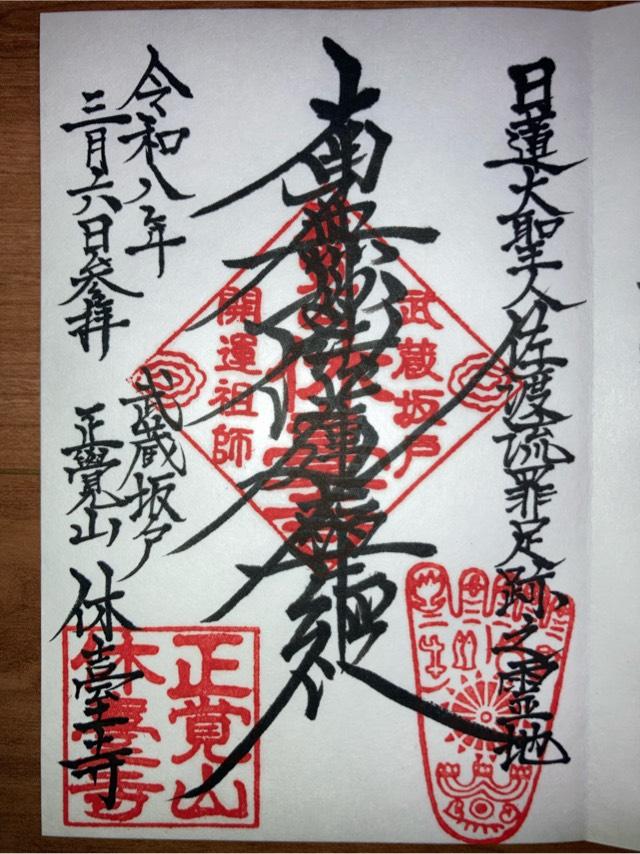 日蓮大聖人佐渡流罪足跡之霊地
武蔵坂戸
南無妙法蓮華經
開運祖師
令和八年
三月六日参拝
武蔵坂戸
正覺山
休臺寺
正覚山
休臺寺